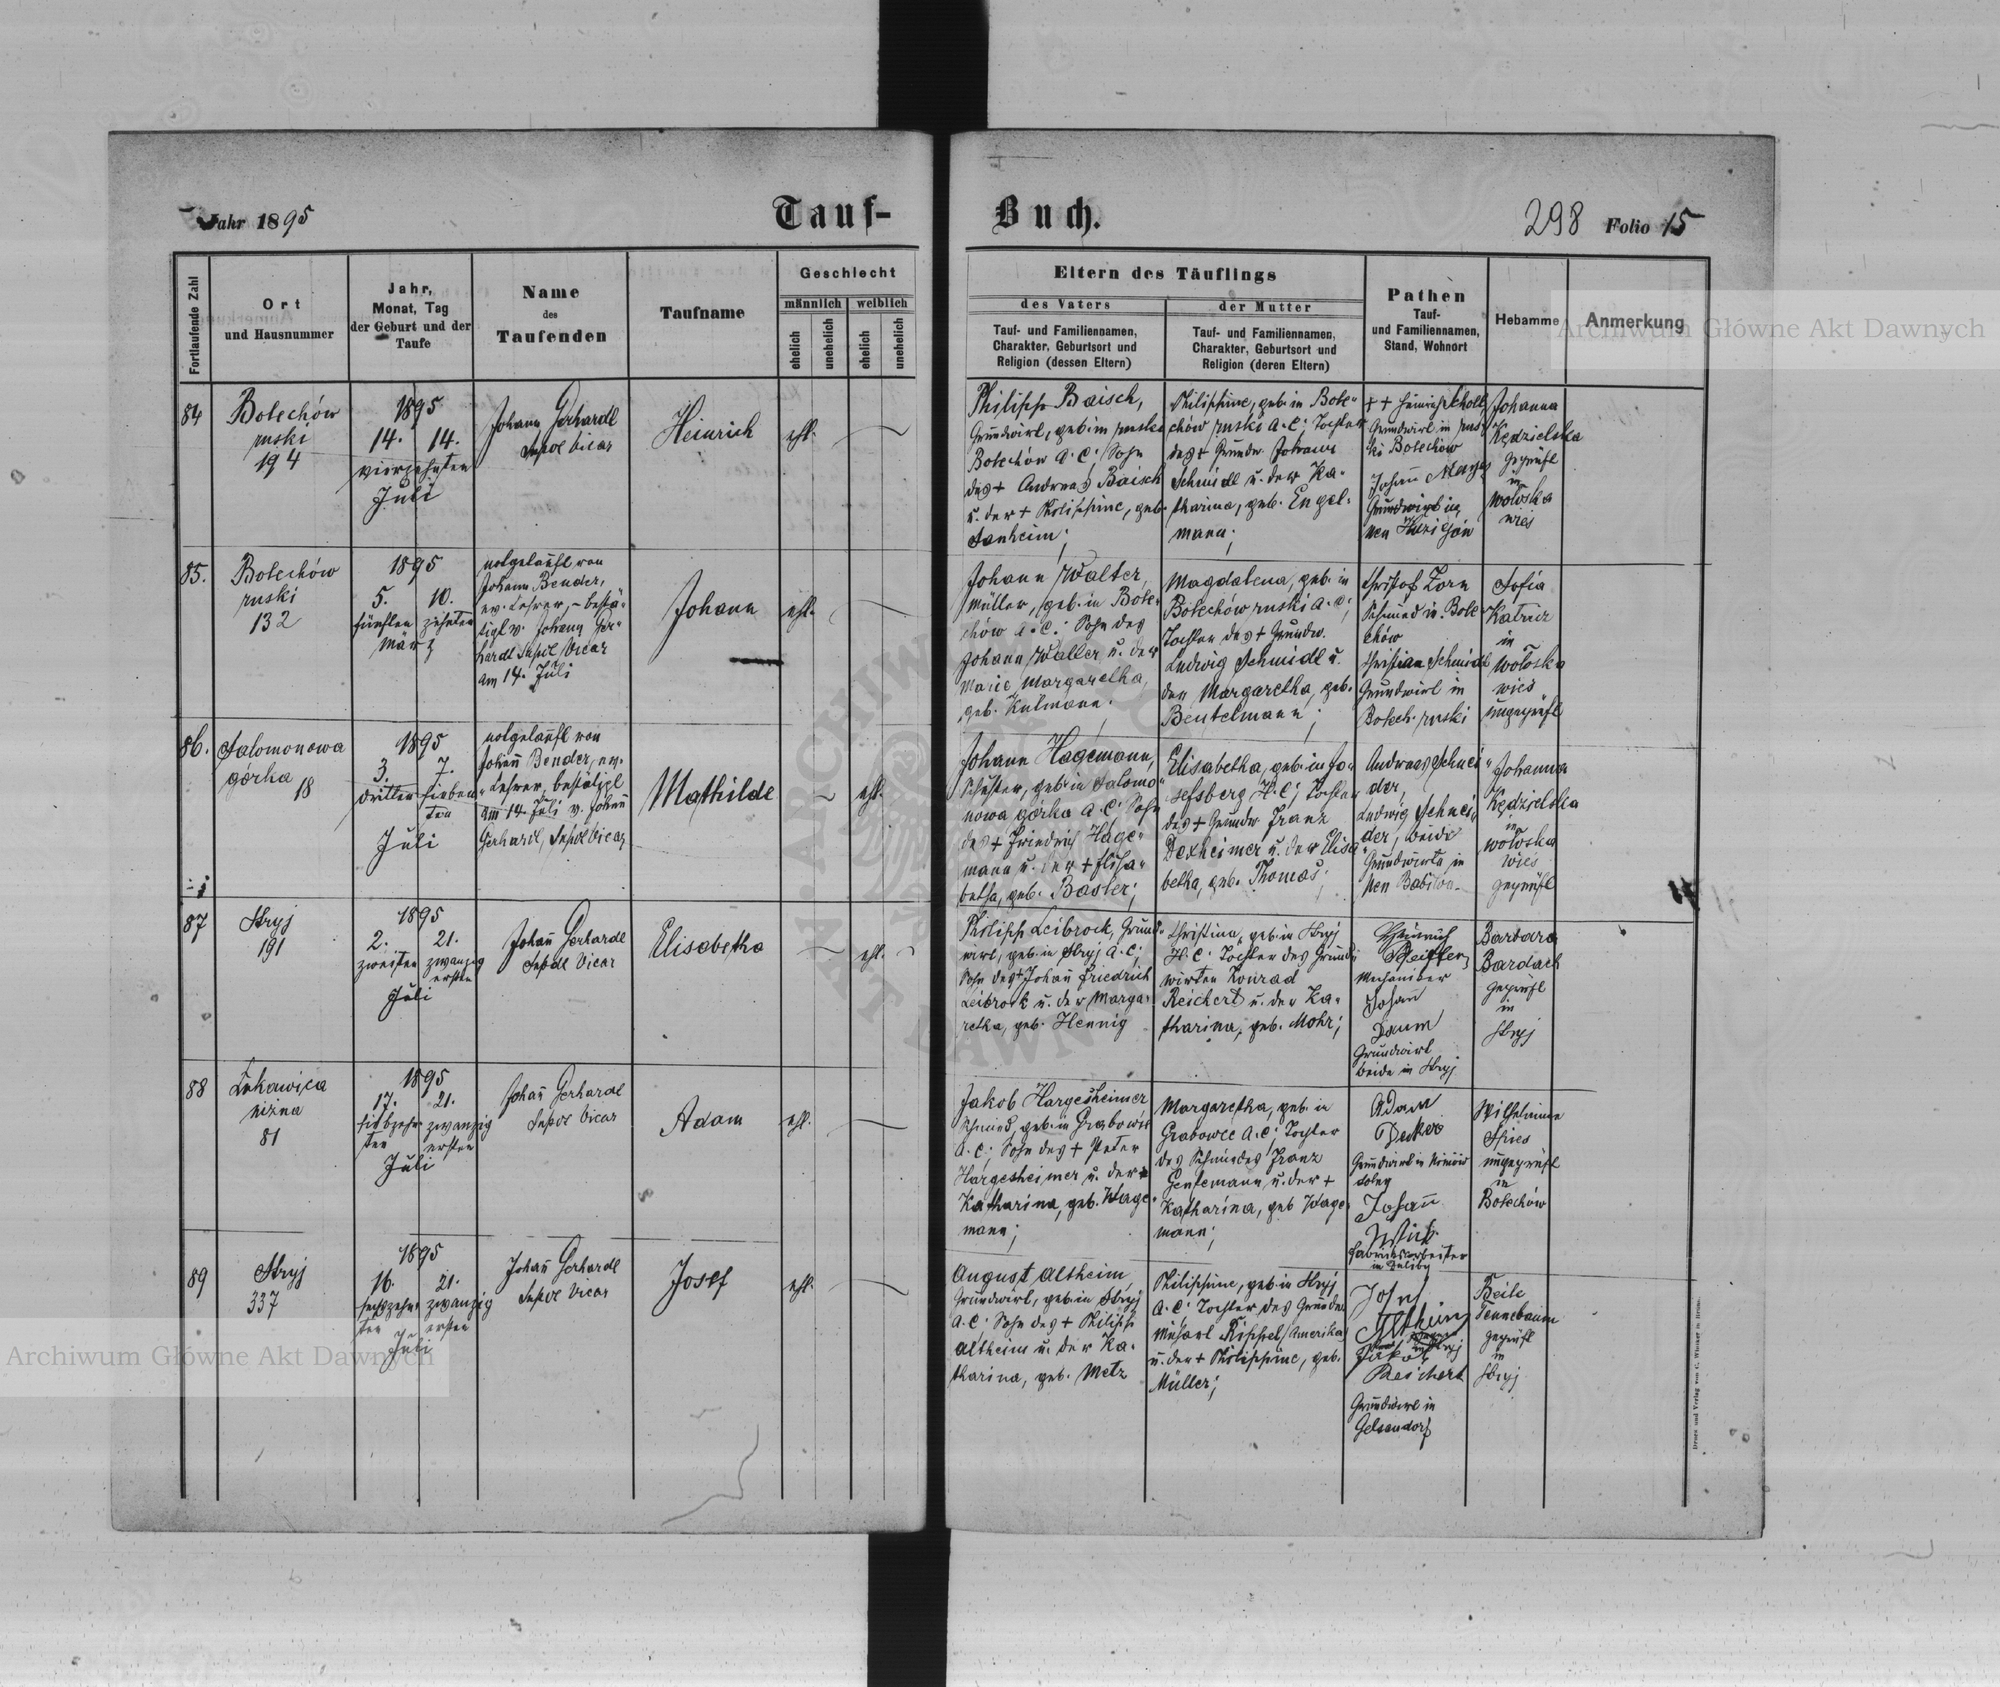 Jahr 1895
Tauf-
Buch.
298 Folio 15
Fortlaufende Zahl
Ort
und Hausnummer
Jahr,
Monat, Tag
der Geburt und der
Taufe
Name
des
Taufenden
Taufname
Geschlecht
männlich
weiblich
ehelich
unehelich
ehelich
unehelich
Eltern des Täuflings
des Vaters
der Mutter
Tauf- und Familiennamen,
Charakter, Geburtsort und
Religion (dessen Eltern)
Tauf- und Familiennamen,
Charakter, Geburtsort und
Religion (deren Eltern)
Pathen
Tauf-
und Familiennamen,
Stand, Wohnort
Hebamme
Anmerkung
84
Bolechów
ruski
194
1895
14. 14.
vierzehnten
Juli
Johann Gerhardt
Supol Vicar
Heinrich
ehl.
Philipp Baisch,
Grundwirt, geb. in ruski
Bolechów A.C; Sohn
des + Andreas Baisch
u. der + Philippine, geb.
Philippine, geb. in Bole-
chów ruski A.C; Tochter
des + Grundw. Johann
Schmidt u. der Ka-
tharina, geb. Engel-
mann;
++ Heinrich Scholl
Grundwirt in rus-
ki Bolechów
Johann
Grundwirt in
Johanna
Kędzielska
geprüft
in
Wołoska
wieś
85.
Bolechów
ruski
132
1895
5. 10.
fünften zehnten
März
notgetauft von
Johann Bender,
ev. Lehrer, - bestä-
tigt v. Johann Ger-
hardt Supol Vicar
am 14. Juli
Johann
ehl.
Johann Walter,
Müller, geb. in Bole-
chów A.C; Sohn des
Johann Walter u. der
Marie Margaretha,
geb. Kulmann.
Magdalena, geb. in
Bolechów ruski A.C;
Tochter des + Grundw.
Ludwig Schmidt u.
der Margaretha, geb.
Beutelmann;
Christof Zorn
Schmied in Bole-
chów
Christian Schmidt
Grundwirt in
Bolech. ruski
Sofia
Katricz
in
Wołoska
wieś
ungeprüft
86.
Salomonowa
górka
18
1895
3. 7.
dritten sieben-
ten
Juli
notgetauft von
Johann Bender, ev.
Lehrer, bestätigt
am 14. Juli v. Johann
Gerhardt, Supol Vicar
Mathilde
ehl.
Johann Hagemann,
Schuster, geb. in Salomo-
nowa górka A.C; Sohn
des + Friedrich Hage-
mann u. der + Elisa-
betha, geb. Basler;
Elisabetha, geb. in Jo-
sefsberg H.C; Tochter
des + Grundw. Franz
Dexheimer u. der Elisa-
betha, geb. Thomas;
Andreas Schnei-
der,
Ludwig Schnei-
der, beide
Grundwirte in
Neu Babilon.
Johanna
Kędzielska
in
Wołoska
wieś
geprüft
87
Stryj
191
1895
2. 21.
zweiten zwanzig
ersten
Juli
Johann Gerhardt
Supol Vicar
Elisabetha
ehl.
Philipp Leibrock, Grund-
wirt, geb. in Stryj A.C;
Sohn des + Johann Friedrich
Leibrock u. der Marga-
retha, geb. Hennig
Christina, geb. in Stryj
H.C; Tochter des Grund-
wirten Konrad
Reichert u. der Ka-
tharina, geb. Mohr;
Heinrich
Pfeiffer,
Mechaniker
Johann
Daum
Grundwirt
beide in Stryj
Barbara
Bardach
geprüft
in
Stryj
88
Łukawica
niżna
81
1895
17. 21.
siebzehn- zwanzig
ten ersten
Juli
Johann Gerhardt
Supol Vicar
Adam
ehl.
Jakob Hargesheimer
Schmied, geb. in Grabowce
A.C; Sohn des + Peter
Hargesheimer u. der +
Katharina, geb. Wage-
mann;
Margaretha, geb. in
Grabowce A.C; Tochter
des Schmiedes Franz
Gensemann u. der +
Katharina, geb. Wage-
mann;
Adam
Decker
Grundwirt in
Johann
Fabriksarbeiter
Wilhelmine
Spies
ungeprüft
in
Bolechów
89
Stryj
337
1895
16. 21.
sechszehn- zwanzig
ten ersten
Juli
Johann Gerhardt
Supol Vicar
Josef
ehl.
August Altheim,
Grundwirt, geb. in Stryj
A.C; Sohn des + Philipp
Altheim u. der Ka-
tharina, geb. Metz
Philippine, geb. in Stryj
A.C; Tochter des Grundw.
Michael Rippel (Amerika)
u. der + Philippine, geb.
Müller;
Josef
Altheim
Jakob
Reichert
Grundwirt in
Gelsendorf
Beile
Tennebaum
geprüft
in
Stryj
Archiwum Główne Akt Dawnych
Archiwum Główne Akt Dawnych